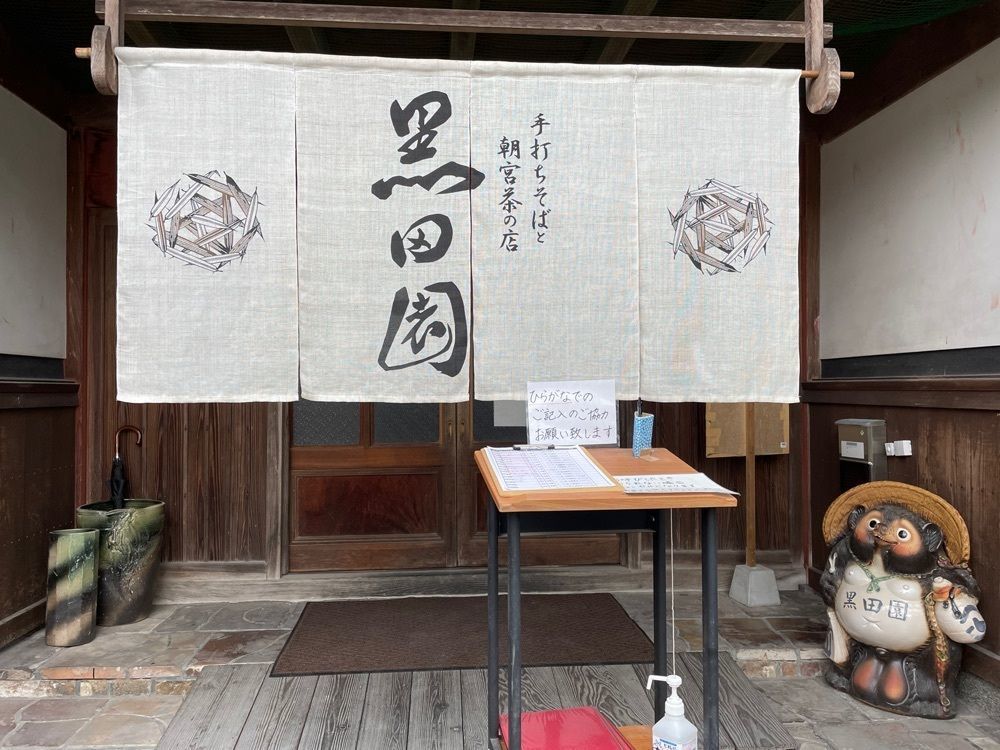 黒田園
手打ちそばと
朝宮茶の店
ひらがなでの
ご記入のご協力
お願い致します
黒田園